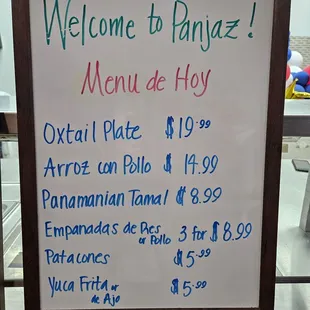 Welcome to Panjaz!
Menu de Hoy
Oxtail Plate $19.99
Arroz con Pollo $14.99
Panamanian Tamal $8.99
Empanadas de Res or Pollo 3 for $8.99
Patacones $5.99
Yuca Frita or de Ajo $5.99